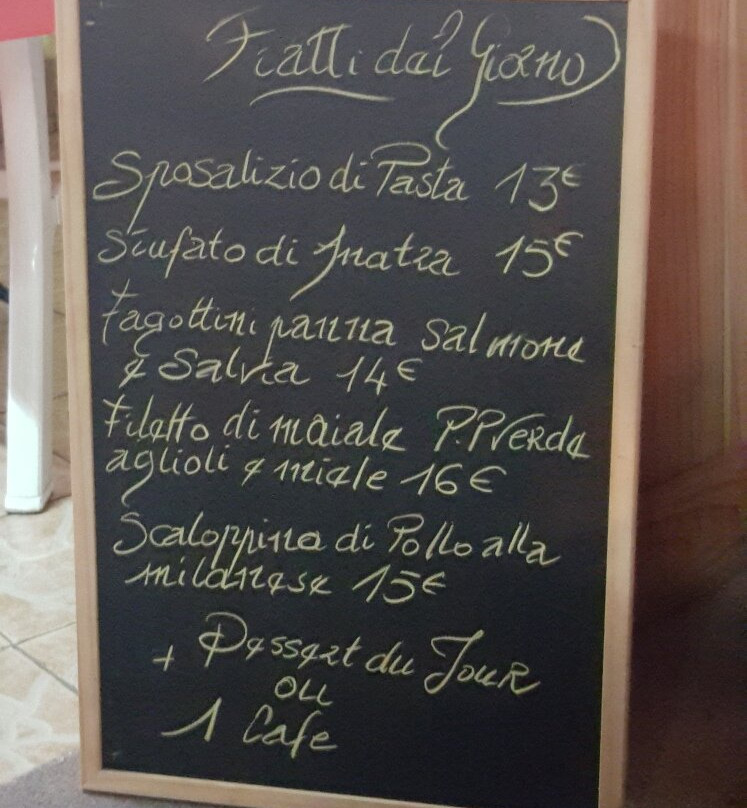 Piatti del Giorno
Sposalizio di Pasta 13€
Stufato di Anatra 15€
Fagottini panna Salmone
& Salvia 14€
Filetto di maiale P.P Verde
aglioli & miele 16€
Scaloppina di Pollo alla
milanese 15€
+ Dessert du Jour
ou
1 Cafe